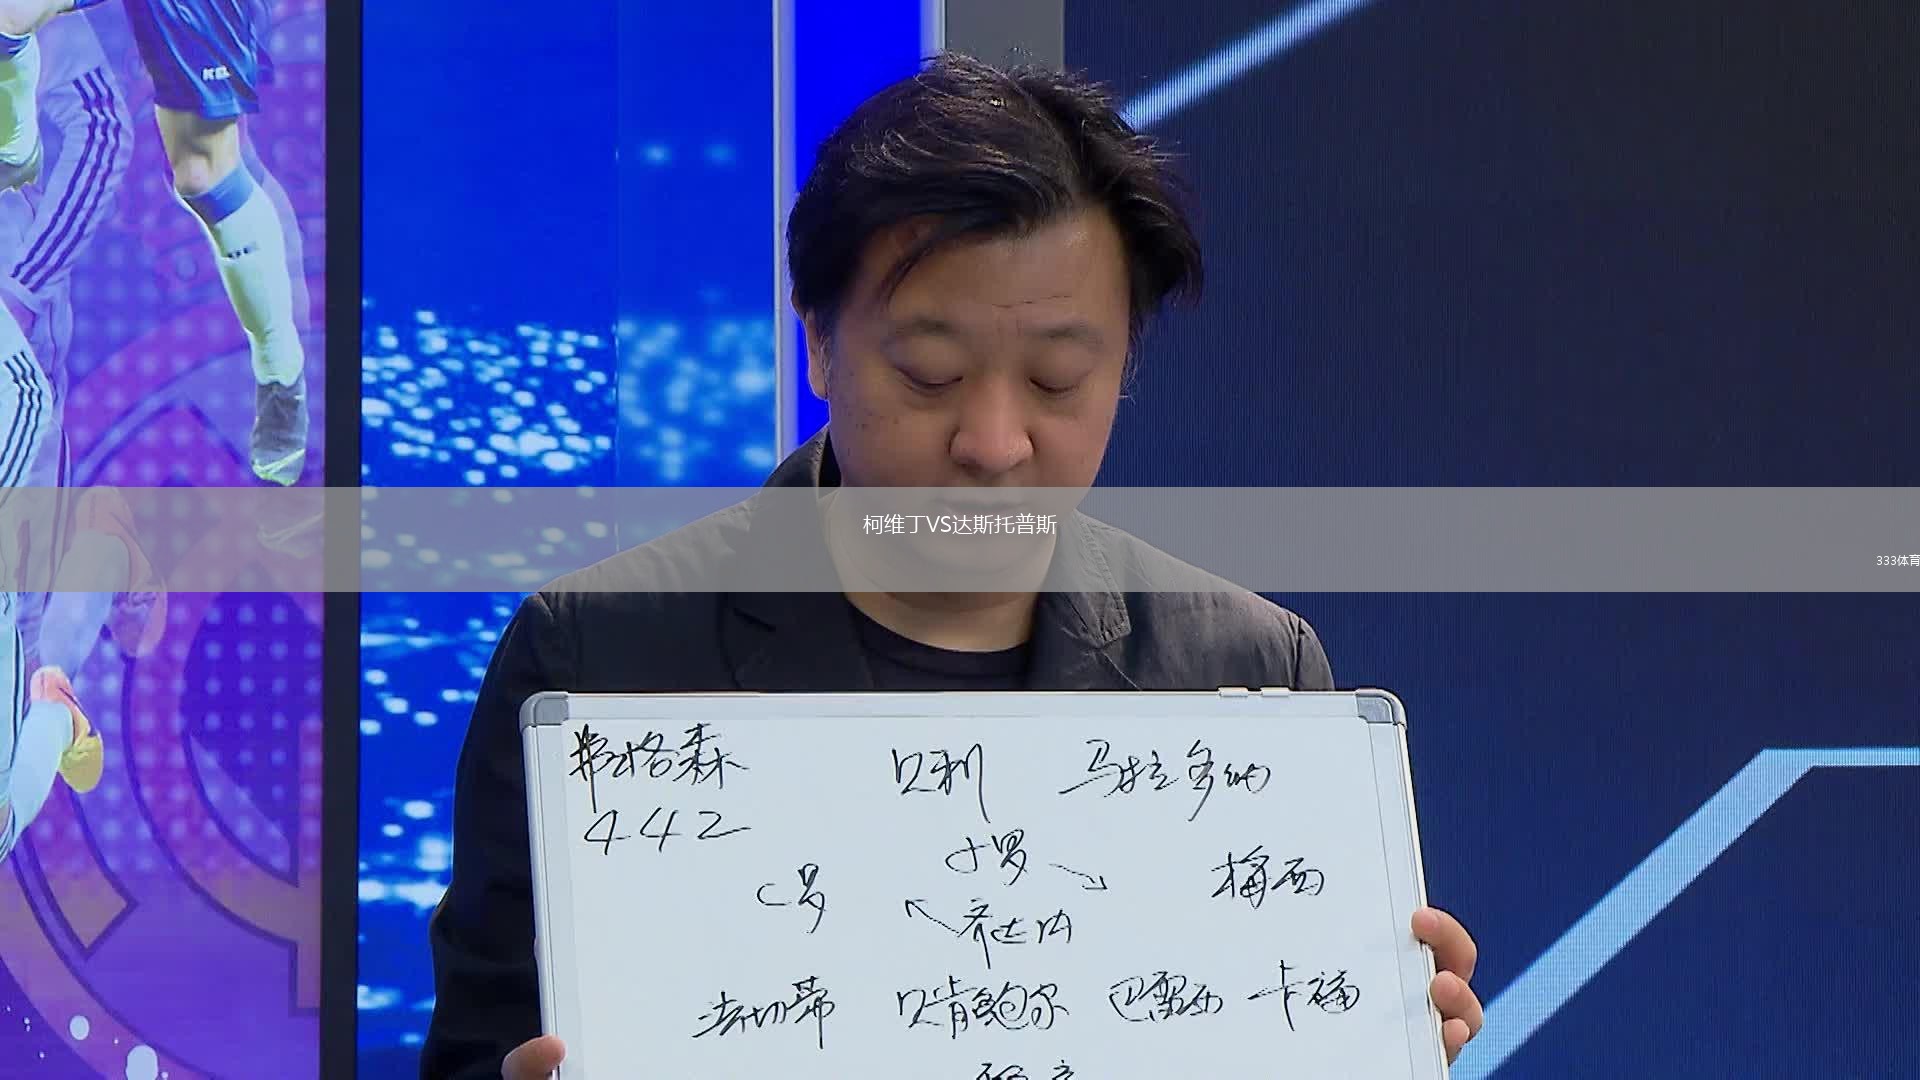 柯维丁VS达斯托普斯
333体育
弗格森 贝利 马拉多纳
442
小罗
C罗 梅西
齐达内
法切蒂 贝肯鲍尔 巴雷西 卡福